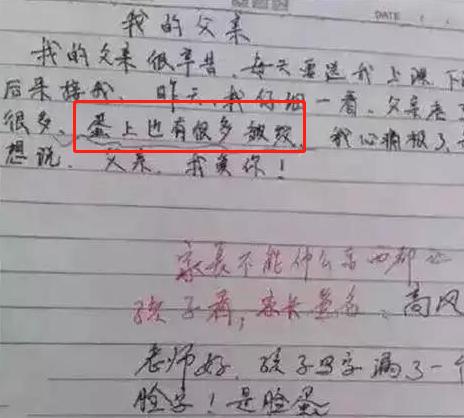 DATE
我的父亲
我的父亲很辛苦,每天要送我上课下
后来接我。昨天,我仔细一看,父亲老了
很多、蛋上也有很多皱纹,我心痛极了,
想说,父亲,我爱你!
家长不能什么东西都让
孩子看,家长签名、高风
老师好,孩子写字漏了一个
脸字!是脸蛋